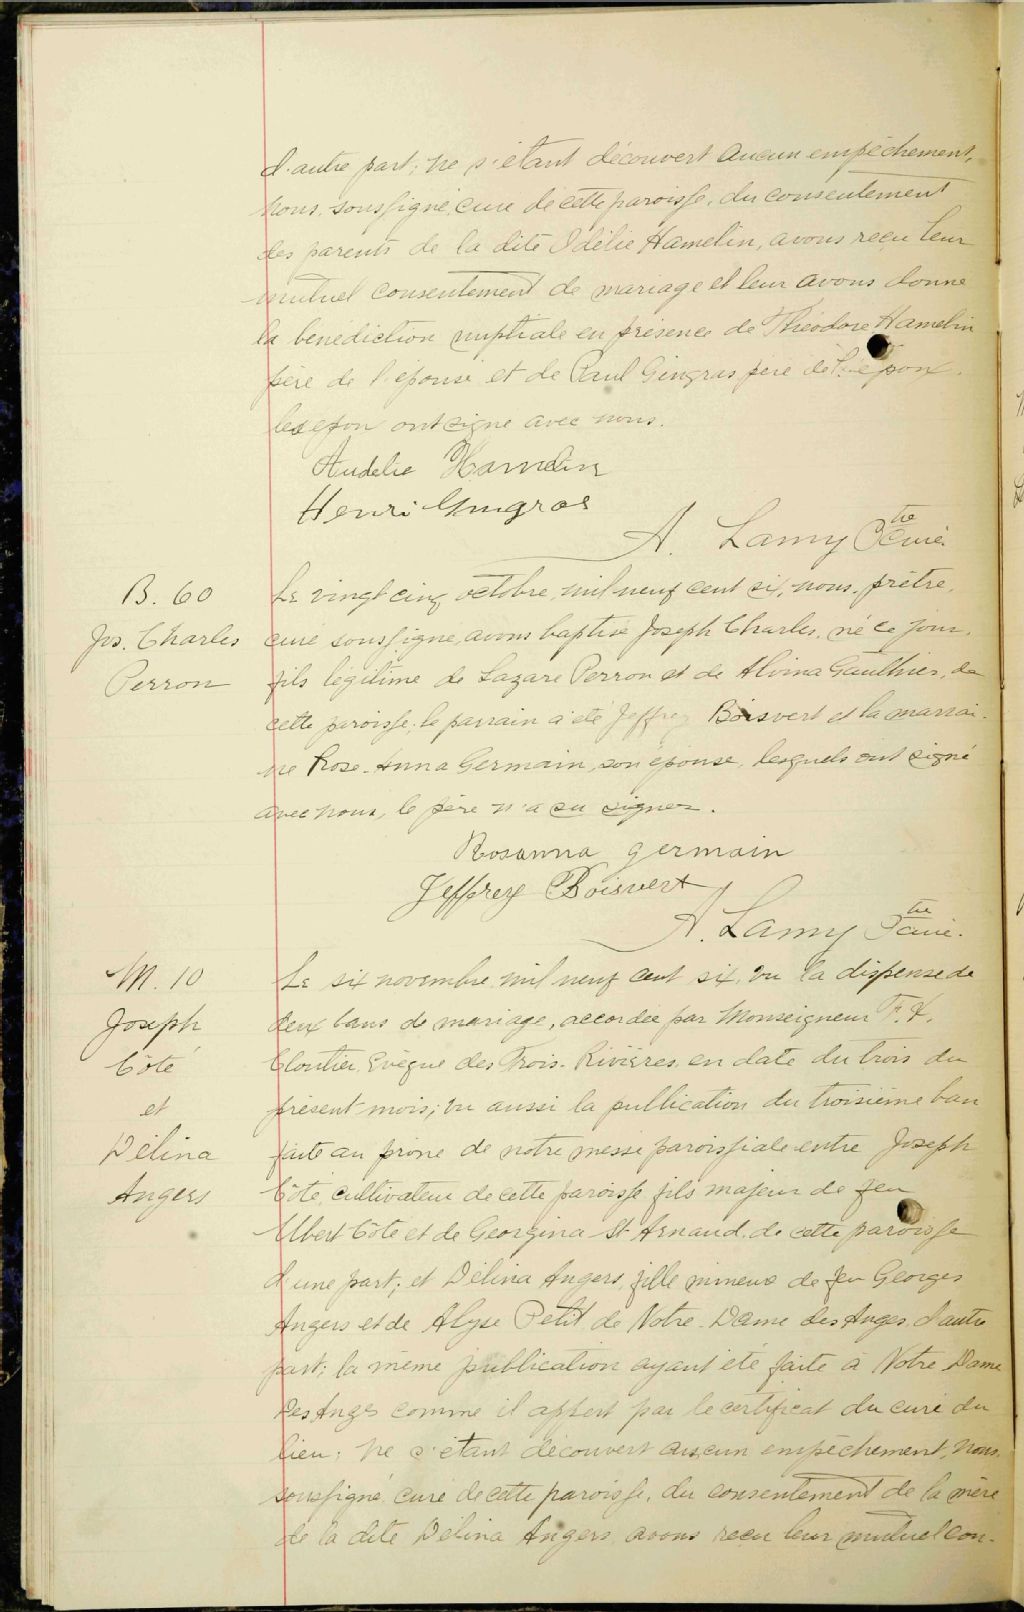 d'autre part; ne s'étant découvert aucun empêchement,
nous, soussigné, curé de cette paroisse, du consentement
des parents de la dite Odélie Hamelin, avons reçu leur
mutuel consentement de mariage et leur avons donné
la bénédiction nuptiale en présence de Théodore Hamelin
père de l'épouse et de Paul Gingras père de l'époux.
ont signé avec nous.
Audelie Hamelin
Henri Gingras
A. Lamy Ptre Curé.
B. 60
Jos. Charles
Perron
Le vingt cinq octobre, mil neuf cent six, nous, prêtre,
curé soussigné, avons baptisé Joseph Charles, né ce jour,
fils légitime de Lazare Perron et de Alvina Gauthier, de
cette paroisse; le parrain a été Jeffrey Boisvert et la marrai-
ne Rose-Anna Germain, son épouse, lesquels ont signé
avec nous, le père n'a su signer.
Rosanna germain
Jeffrey Boisvert
A. Lamy Ptre curé.
M. 10
Joseph
Côté
et
Délina
Angers
Le six novembre, mil neuf cent six, vu la dispense de
deux bans de mariage, accordée par Monseigneur F. X.
Cloutier, Evêque des Trois-Rivières, en date du trois du
présent mois; vu aussi la publication du troisième ban
faite au prône de notre messe paroissiale entre Joseph
Côté, cultivateur de cette paroisse, fils majeur de feu
Ubert Côté et de Georgina St Arnaud, de cette paroisse
d'une part; et Délina Angers, fille mineure de feu Georges
Angers et de Alyse Petit de Notre-Dame des Anges, d'autre
part; la même publication ayant été faite à Notre Dame
Des Anges comme il appert par le certificat du curé du
lieu; ne s'étant découvert aucun empêchement, nous,
soussigné, curé de cette paroisse, du consentement de la mère
de la dite Délina Angers avons reçu leur mutuel con-